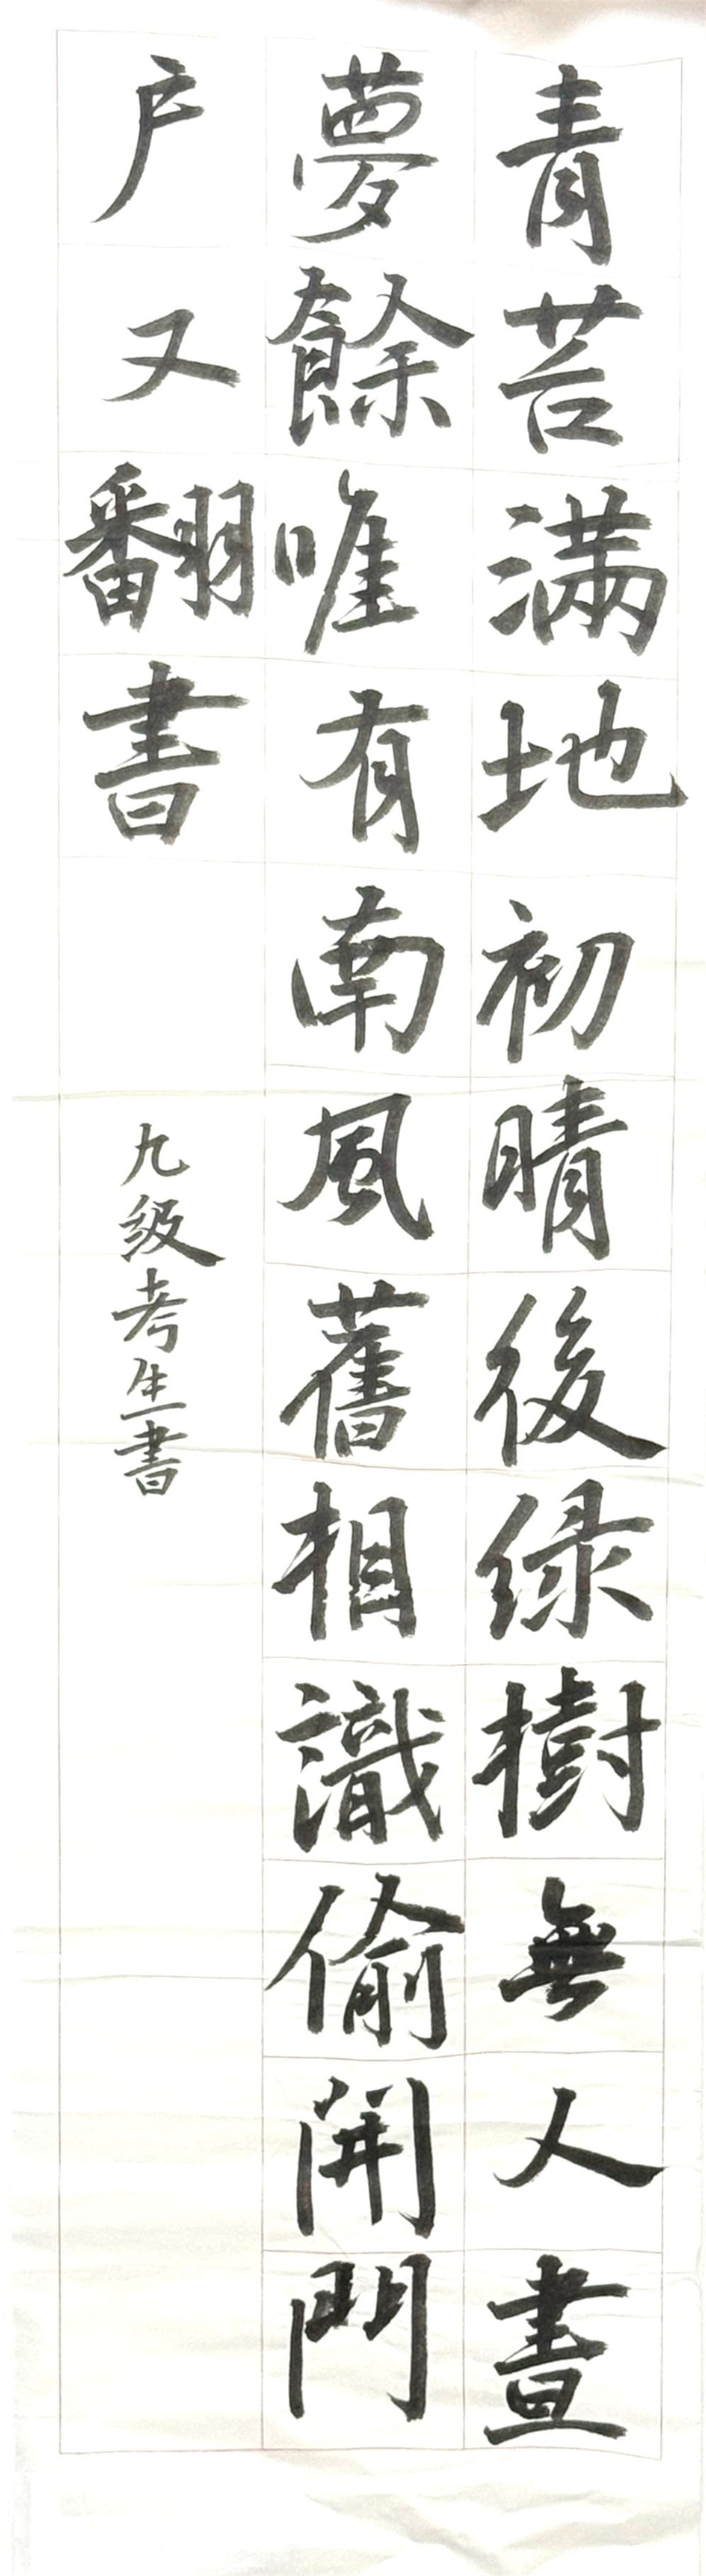 青苔滿地初晴後綠樹無人晝
夢餘唯有南風舊相識偷開門
戶又翻書
九級考生書